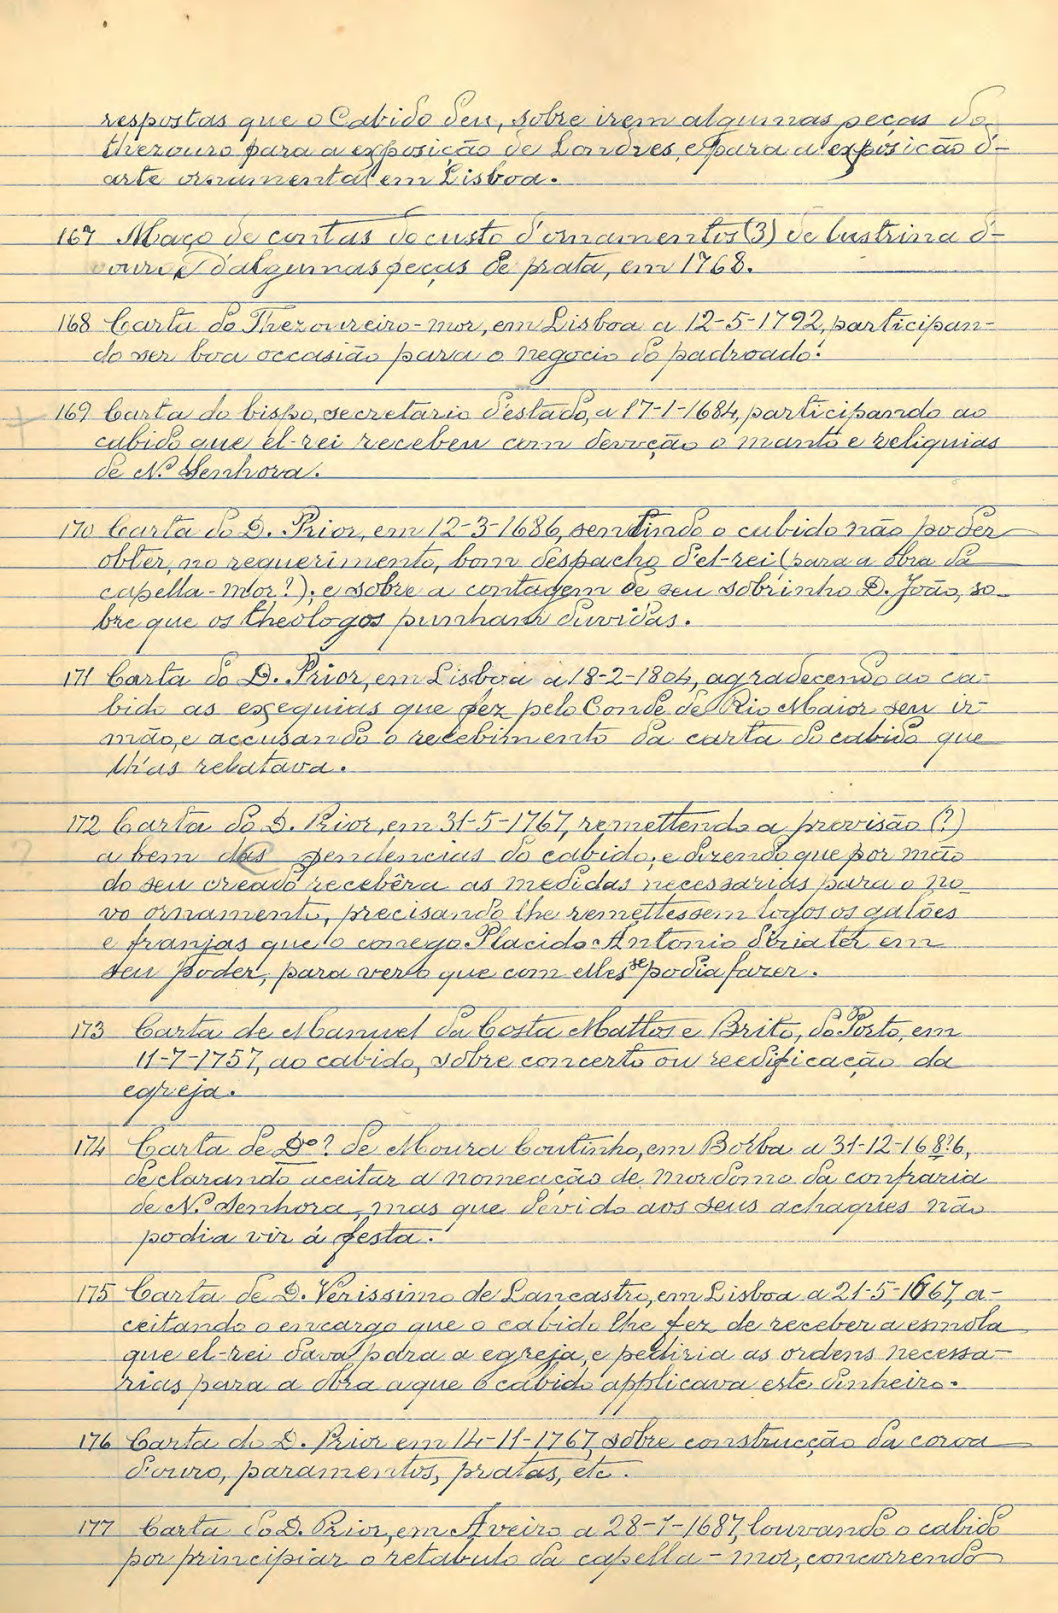 respostas que o Cabido deu, sobre irem algumas peças do
thezouro para a exposição de Londres, e para a exposição d'-
arte ornamental em Lisboa.
167 Maço de contas do custo d'ornamentos (3) de lustrina d'-
ouro e d'algumas peças de prata, em 1768.
168 Carta do Thezoureiro-mor, em Lisboa a 12-5-1792, participan-
do ser boa occasião para o negocio do padroado.
169 Carta do bispo, secretario d'estado, a 17-1-1684, participando ao
cabido que el-rei recebeu com devoção o manto e reliquias
de N.ª Senhora.
170 Carta do D. Prior, em 12-3-1686, sentindo o cabido não poder
obter, no requerimento, bom despacho d'el-rei (para a obra da
capella-mór?); e sobre a contagem de seu sobrinho D. João, so-
bre que os theologos punham duvidas.
171 Carta do D. Prior, em Lisboa a 18-2-1804, agradecendo ao ca-
bido as exequias que fez pelo Conde de Rio Maior seu ir-
mão, e accusando o recebimento da carta do cabido que
lh'as relatava.
172 Carta do D. Prior, em 31-5-1767, remettendo a provisão (?)
a bem das pendencias do cabido; e dizendo que por mão
do seu creado recebêra as medidas necessarias para o no-
vo ornamento, precisando lhe remettessem logo os galões
e franjas que o conego Placido Antonio devia ter em
seu poder, para ver o que com elles se podia fazer.
173 Carta de Manuel da Costa Mattos e Brito, do Porto, em
11-7-1757, ao cabido, sobre concerto ou reedificação da
egreja.
174 Carta de D.º? de Moura Coutinho, em Borba a 31-12-168?6,
declarando aceitar a nomeação de mordomo da confraria
de N.ª Senhora, mas que devido aos seus achaques não
podia vir á festa.
175 Carta de D. Verissimo de Lancastro, em Lisboa a 21-5-1667, a-
ceitando o encargo que o cabido lhe fez de receber a esmola
que el-rei dava para a egreja, e pediria as ordens necessa-
rias para a obra a que o cabido applicava este dinheiro.
176 Carta do D. Prior em 14-11-1767, sobre construcção da coroa
d'ouro, paramentos, pratas, etc.
177 Carta do D. Prior, em Aveiro a 28-7-1687, louvando o cabido
por principiar o retabulo da capella-mor, concorrendo